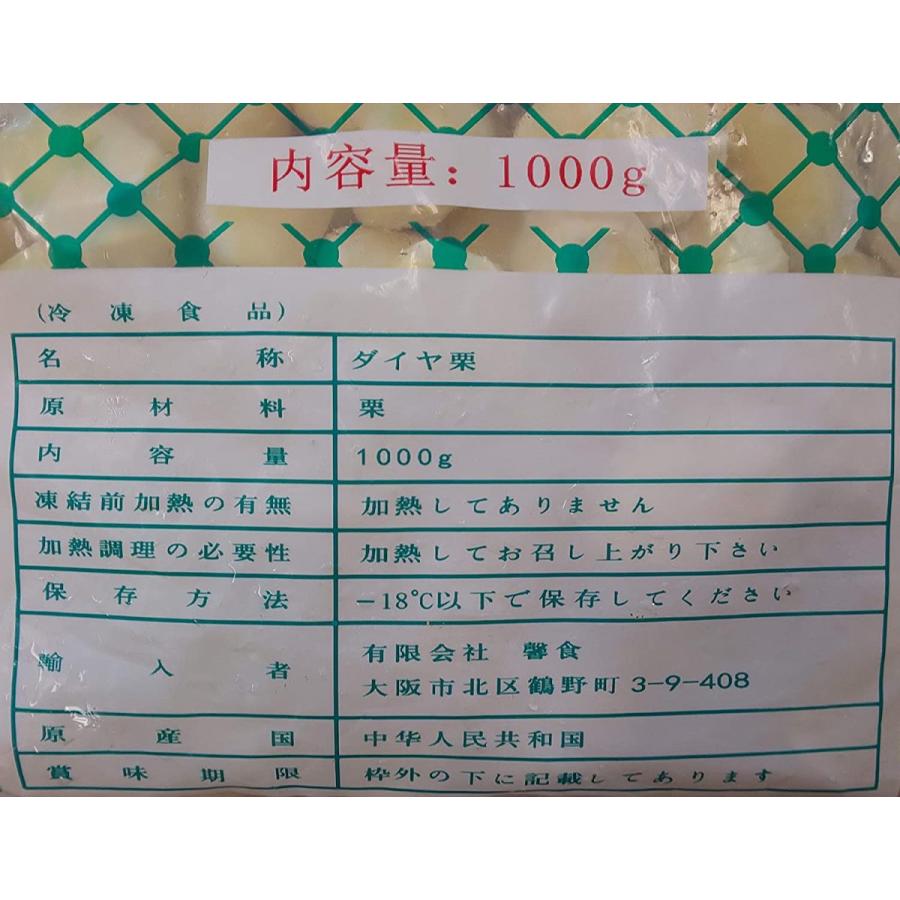 内容量：1000g
（冷凍食品）
名称 ダイヤ栗
原材料 栗
内容量 1000g
凍結前加熱の有無 加熱してありません
加熱調理の必要性 加熱してお召し上がり下さい
保存方法 −18℃以下で保存してください
輸入者 有限会社 馨食
大阪市北区鶴野町3-9-408
原産国 中华人民共和国
賞味期限 枠外の下に記載してあります